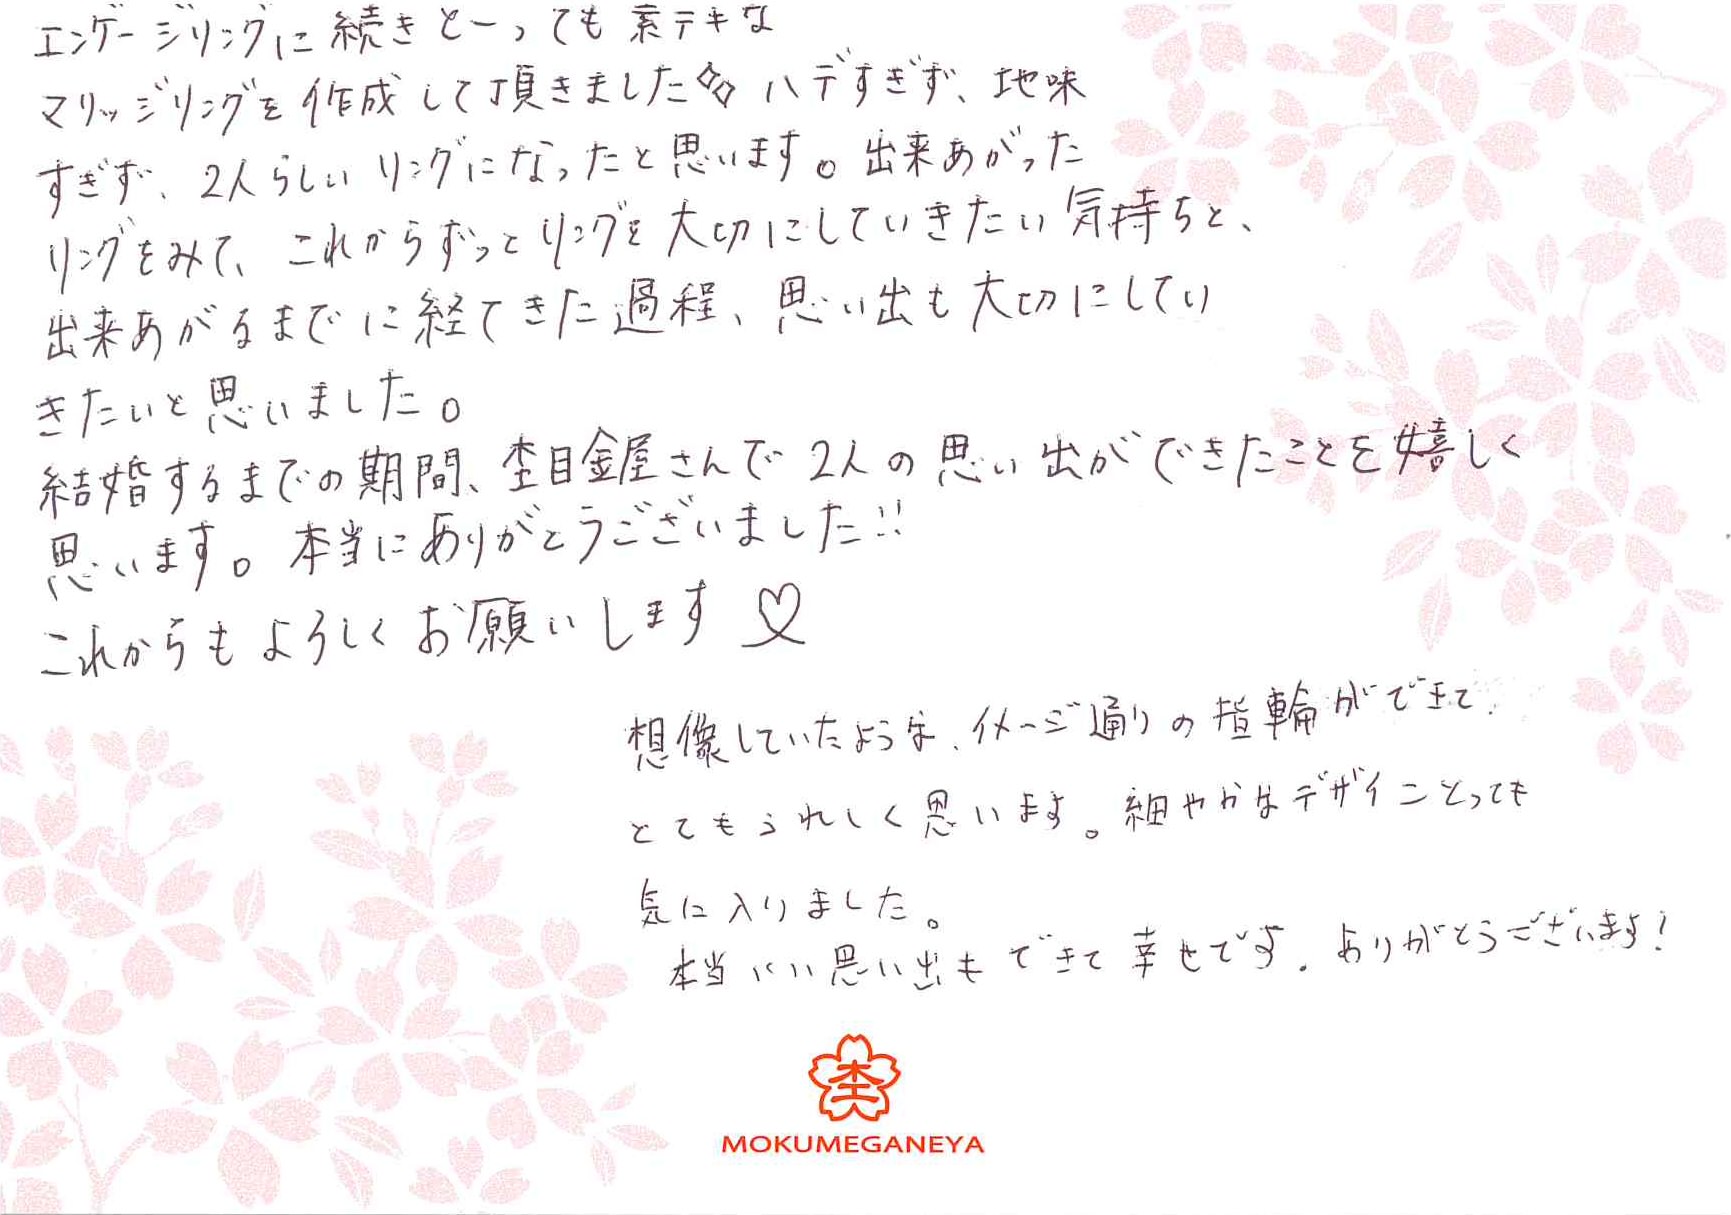 エンゲージリングに続きとーっても素テキな
マリッジリングを作成して頂きました ハデすぎず、地味
すぎず、2人らしいリングになったと思います。出来あがった
リングをみて、これからずっとリングを大切にしていきたい気持ちと、
出来あがるまでに経てきた過程、思い出も大切にしてい
きたいと思いました。
結婚するまでの期間、杢目金屋さんで2人の思い出ができたことを嬉しく
思います。本当にありがとうございました!!
これからもよろしくお願いします♡
想像していたような、イメージ通りの指輪ができて、
とてもうれしく思います。細やかなデザインとっても
気に入りました。
本当いい思い出もできて幸せです。ありがとうございます!
杢
MOKUMEGANEYA